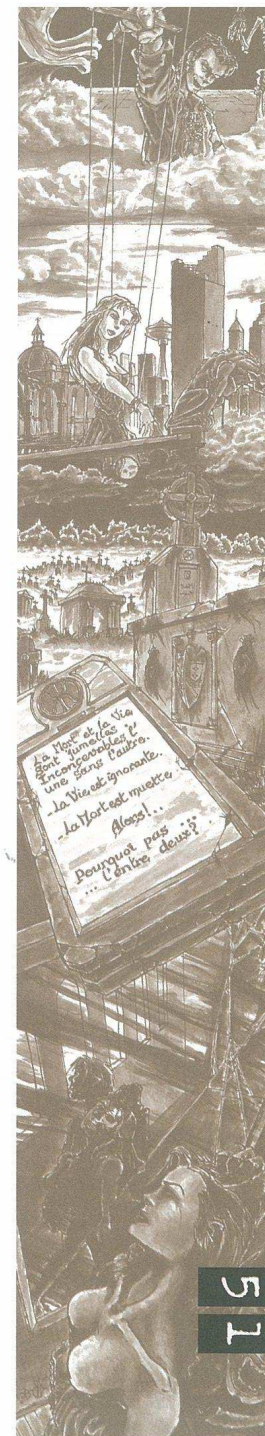 La Mort et la Vie
sont jumelles...
Inconcevables l'
une sans l'autre.
La Vie est ignorante..
La Mort est muette
Alors!..
Pourquoi pas ...
... l'entre deux?
51